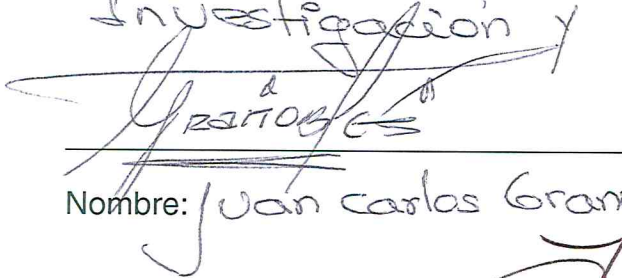 Investigación y
"GRANOBLES"
Nombre: Juan Carlos Gran